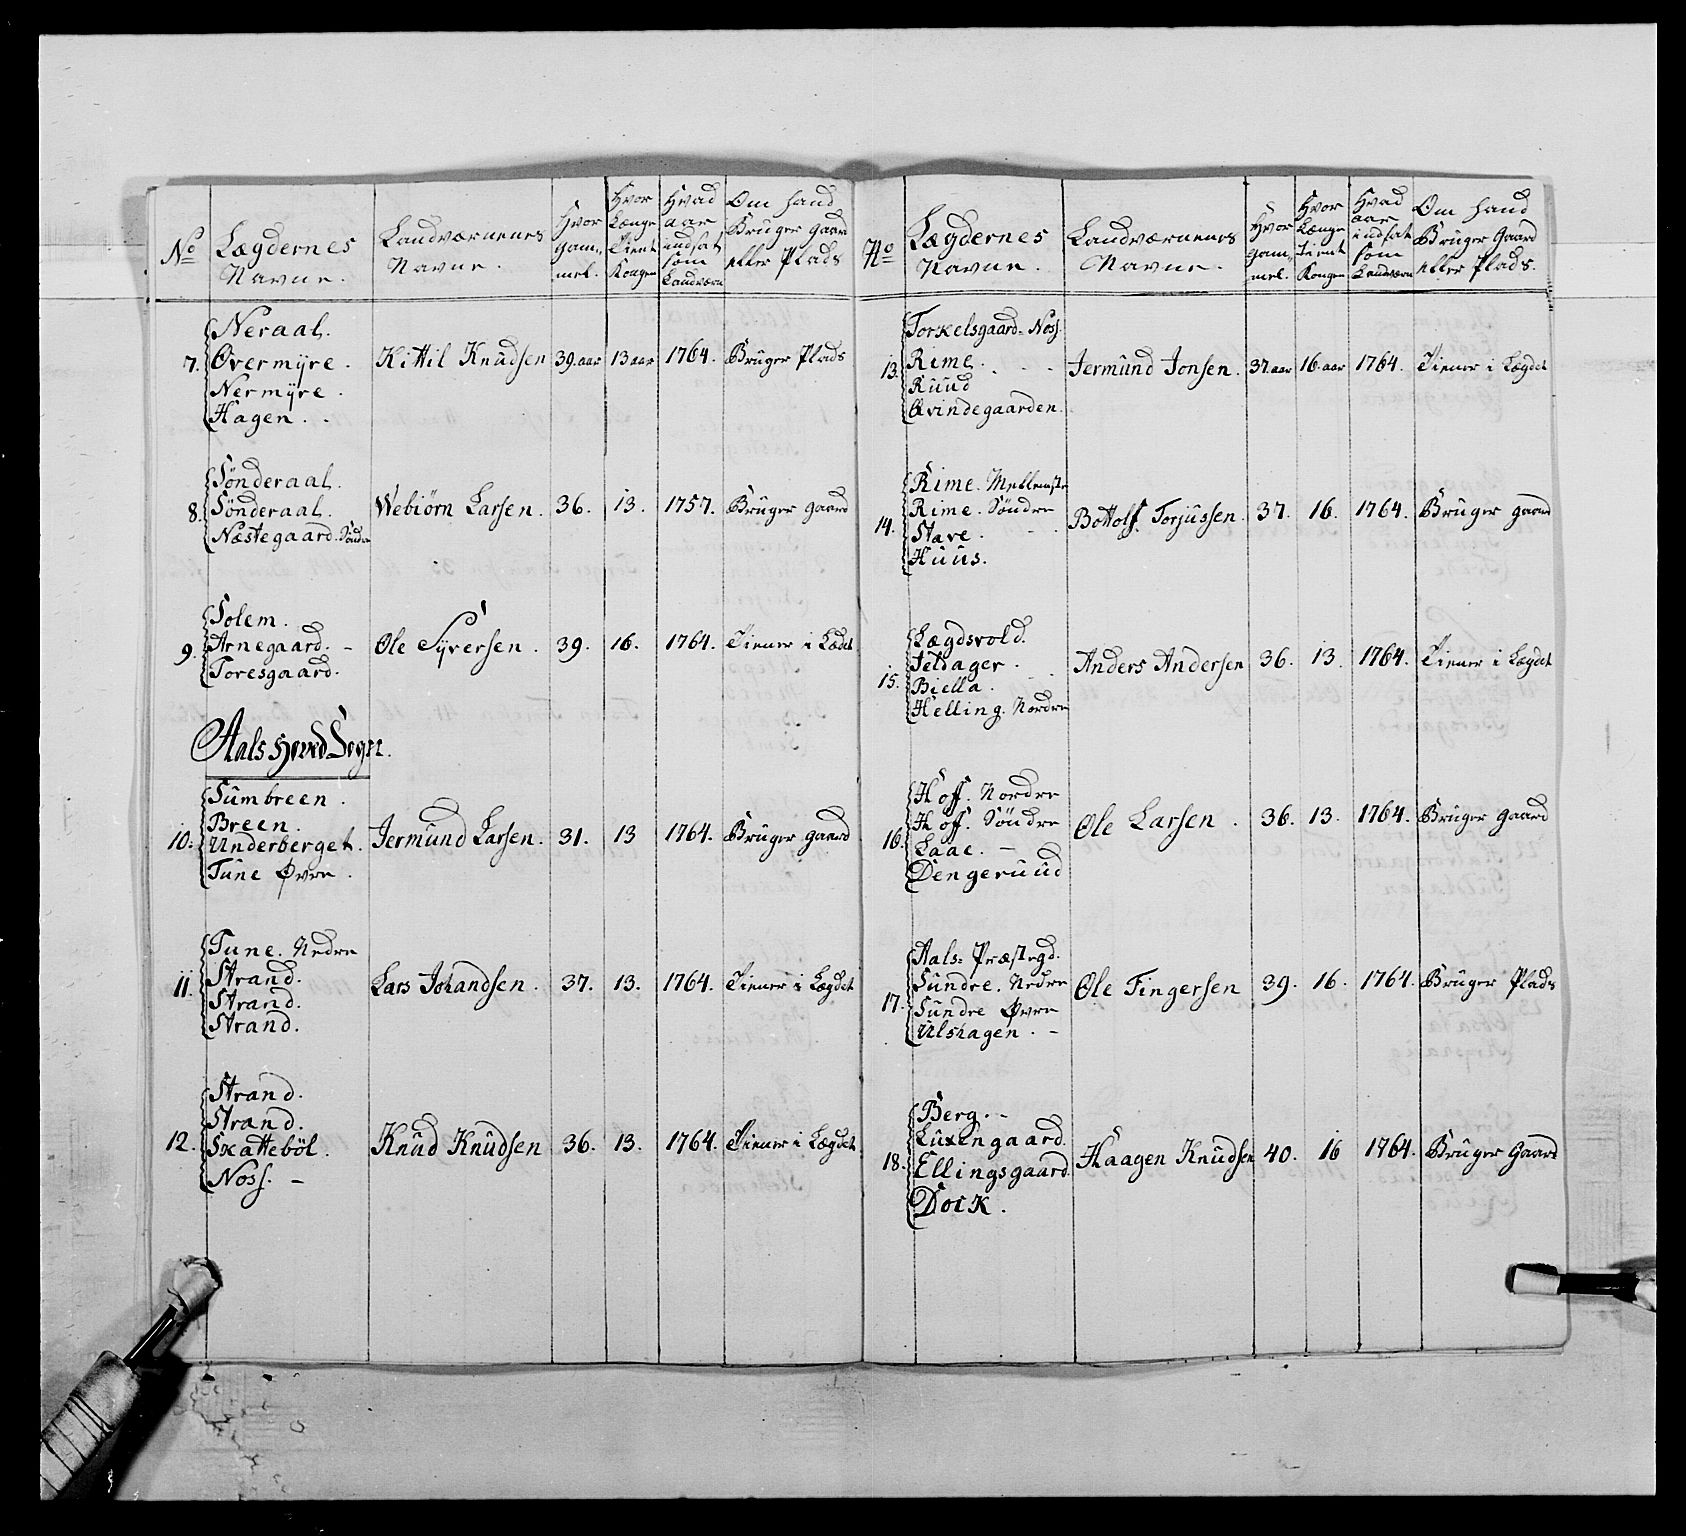 No
Lægdernes
Navne.
Landværnenes
Navne.
Hvor
gam-
mel.
Hvor
Længe
Tient
Kongen
Hvad
aar
indsat
som
Landværn
Om hand
Bruger gaard
eller Plads
7.
Neraal.
Øvermÿre.
Nermÿre.
Hagen.
Kittil Knudsen 39. aar 13 aar 1764. Bruger Plads
8.
Sønderaal.
Sønderaal.
Næstegaard. Søndre
Webiørn Larsen. 36. 13. 1757. Bruger gaard
9.
Solem.
Arnegaard. -
Toresgaard.
Ole Sÿversen. 39. 16. 1764. Tiener i Lædet
Aals Hoved Sogn.
10.
Sumbreen.
Breen.
Underberget.
Tune Øvre.
Jermund Larsen. 31. 13 1764. Bruger gaard
11.
Tune. Nedre
Strand.
Strand.
Strand.
Lars Johandsen. 37. 13. 1764. Tiener i Lægdet
12.
Strand.
Strand.
Skattebøl.
Noss. -
Knud Knudsen 36. 13. 1764. Tiener i Lægdet
No
Lægdernes
Navne.
Landværnenes
Navne.
Hvor
gam-
mel.
Hvor
Længe
tient
Kongen
Hvad
aar
indsat
som
Landværn
Om hand
Bruger Gaard
eller Plads.
13.
Torkelsgaard. Noss.
Rime.
Ruud
Qvindegaarden.
Jermund Jonsen. 37. aar 16. aar 1764. Tiener i Lægdet
14.
Rime. Mellemste
Rime. Søndre
Stave.
Huus.
Bottolf Torjussen. 37. 16. 1764. Bruger gaard
15.
Lægdsvold.
Jeldager.
Biella.
Helling. Nordre
Anders Andersen 36. 13. 1764. Tiener i Lægdet
16.
Hoff. Nordre
Hoff. Søndre
Laae. -
Dengeruud
Ole Larsen. 36. 13. 1764. Bruger Gaard
17.
Aals- Præstegd.
Sundre. Nedre
Sundre Øvre
Ulshagen. -
Ole Fingersen 39. 16. 1764. Bruger Plads
18.
Berg. -
Luxengaard.
Ellingsgaard.
Dock.
Haagen Knudsen 40. 16 1764. Bruger Gaard